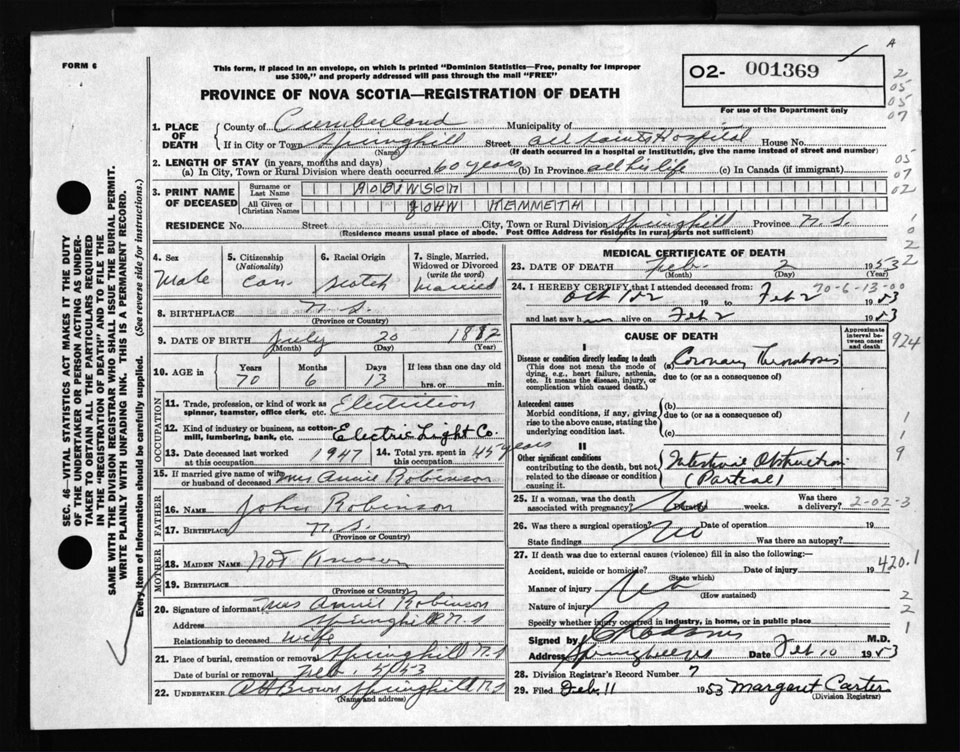 FORM 6
This form, if placed in an envelope, on which is printed "Dominion Statistics—Free, penalty for improper
use $300," and properly addressed will pass through the mail "FREE"
O2- 001369
For use of the Department only
PROVINCE OF NOVA SCOTIA—REGISTRATION OF DEATH
A
2
05
05
07
05
07
02
1. PLACE OF DEATH
County of Cumberland Municipality of
If in City or Town Springhill Street All Saints Hospital House No.
(Name) (If death occurred in a hospital or institution, give the name instead of street and number)
2. LENGTH OF STAY (in years, months and days)
(a) In City, Town or Rural Division where death occurred 60 years (b) In Province all his life (c) In Canada (if immigrant)
3. PRINT NAME OF DECEASED
Surname or Last Name ROBINSON
All Given or Christian Names JOHN KENNETH
RESIDENCE No. Street City, Town or Rural Division Springhill Province N.S.
(Residence means usual place of abode. Post Office Address for residents in rural parts not sufficient)
4. Sex Male
5. Citizenship (Nationality) Can.
6. Racial Origin Scotch
7. Single, Married, Widowed or Divorced (write the word) Married
8. BIRTHPLACE N.S.
(Province or Country)
9. DATE OF BIRTH July 20 1882
(Month) (Day) (Year)
10. AGE in Years 70 Months 6 Days 13 If less than one day old hrs. or min.
OCCUPATION
11. Trade, profession, or kind of work as spinner, teamster, office clerk, etc. Electrition
12. Kind of industry or business, as cotton-mill, lumbering, bank, etc. Electric Light Co.
13. Date deceased last worked at this occupation 1947 14. Total yrs. spent in this occupation 45 years
15. If married give name of wife or husband of deceased Mrs Annie Robinson
FATHER
16. Name John Robinson
17. Birthplace N.S.
(Province or Country)
MOTHER
18. MAIDEN NAME Not Known
19. BIRTHPLACE
(Province or Country)
20. Signature of informant Mrs Annie Robinson
Address Springhill N.S
Relationship to deceased wife
21. Place of burial, cremation or removal Springhill N.S
Date of burial or removal Feb. 5/53
22. UNDERTAKER A B Brown Springhill N.S
(Name and address)
MEDICAL CERTIFICATE OF DEATH
23. DATE OF DEATH Feb. 2 1953
(Month) (Day) (Year)
24. I HEREBY CERTIFY that I attended deceased from: 70-6-13-00
Oct 1 52 19 to Feb 2 1953
and last saw h alive on Feb 2 1953
CAUSE OF DEATH
Approximate interval between onset and death
I
Disease or condition directly leading to death
(This does not mean the mode of dying, e.g., heart failure, asthenia, etc. It means the disease, injury, or complication which caused death.)
(a) Coronary Thrombosis
due to (or as a consequence of)
Antecedent causes
Morbid conditions, if any, giving rise to the above cause, stating the underlying condition last.
(b)
due to (or as a consequence of)
(c)
II
Other significant conditions
contributing to the death, but not related to the disease or condition causing it.
Intestinal Obstruction
(Partial)
924
25. If a woman, was the death associated with pregnancy? No weeks. Was there a delivery? 2-02-3
26. Was there a surgical operation? No Date of operation 19
State findings Was there an autopsy?
27. If death was due to external causes (violence) fill in also the following:—
Accident, suicide or homicide? Date of injury 19 420.1
(State which)
Manner of injury
(How sustained)
Nature of injury
Specify whether injury occurred in industry, in home, or in public place
Signed by M.D.
Address Date Feb 10 1953
28. Division Registrar's Record Number 7
29. Filed Feb. 11 1953 Margaret Carter
(Division Registrar)
SEC. 46—VITAL STATISTICS ACT MAKES IT THE DUTY
OF THE UNDERTAKER OR PERSON ACTING AS UNDER-
TAKER TO OBTAIN ALL THE PARTICULARS REQUIRED
IN THE "REGISTRATION OF DEATH" AND TO FILE THE
SAME WITH THE DIVISION REGISTRAR WHO SHALL ISSUE THE BURIAL PERMIT.
WRITE PLAINLY WITH UNFADING INK. THIS IS A PERMANENT RECORD.
Every item of information should be carefully supplied. (See reverse side for instructions.)